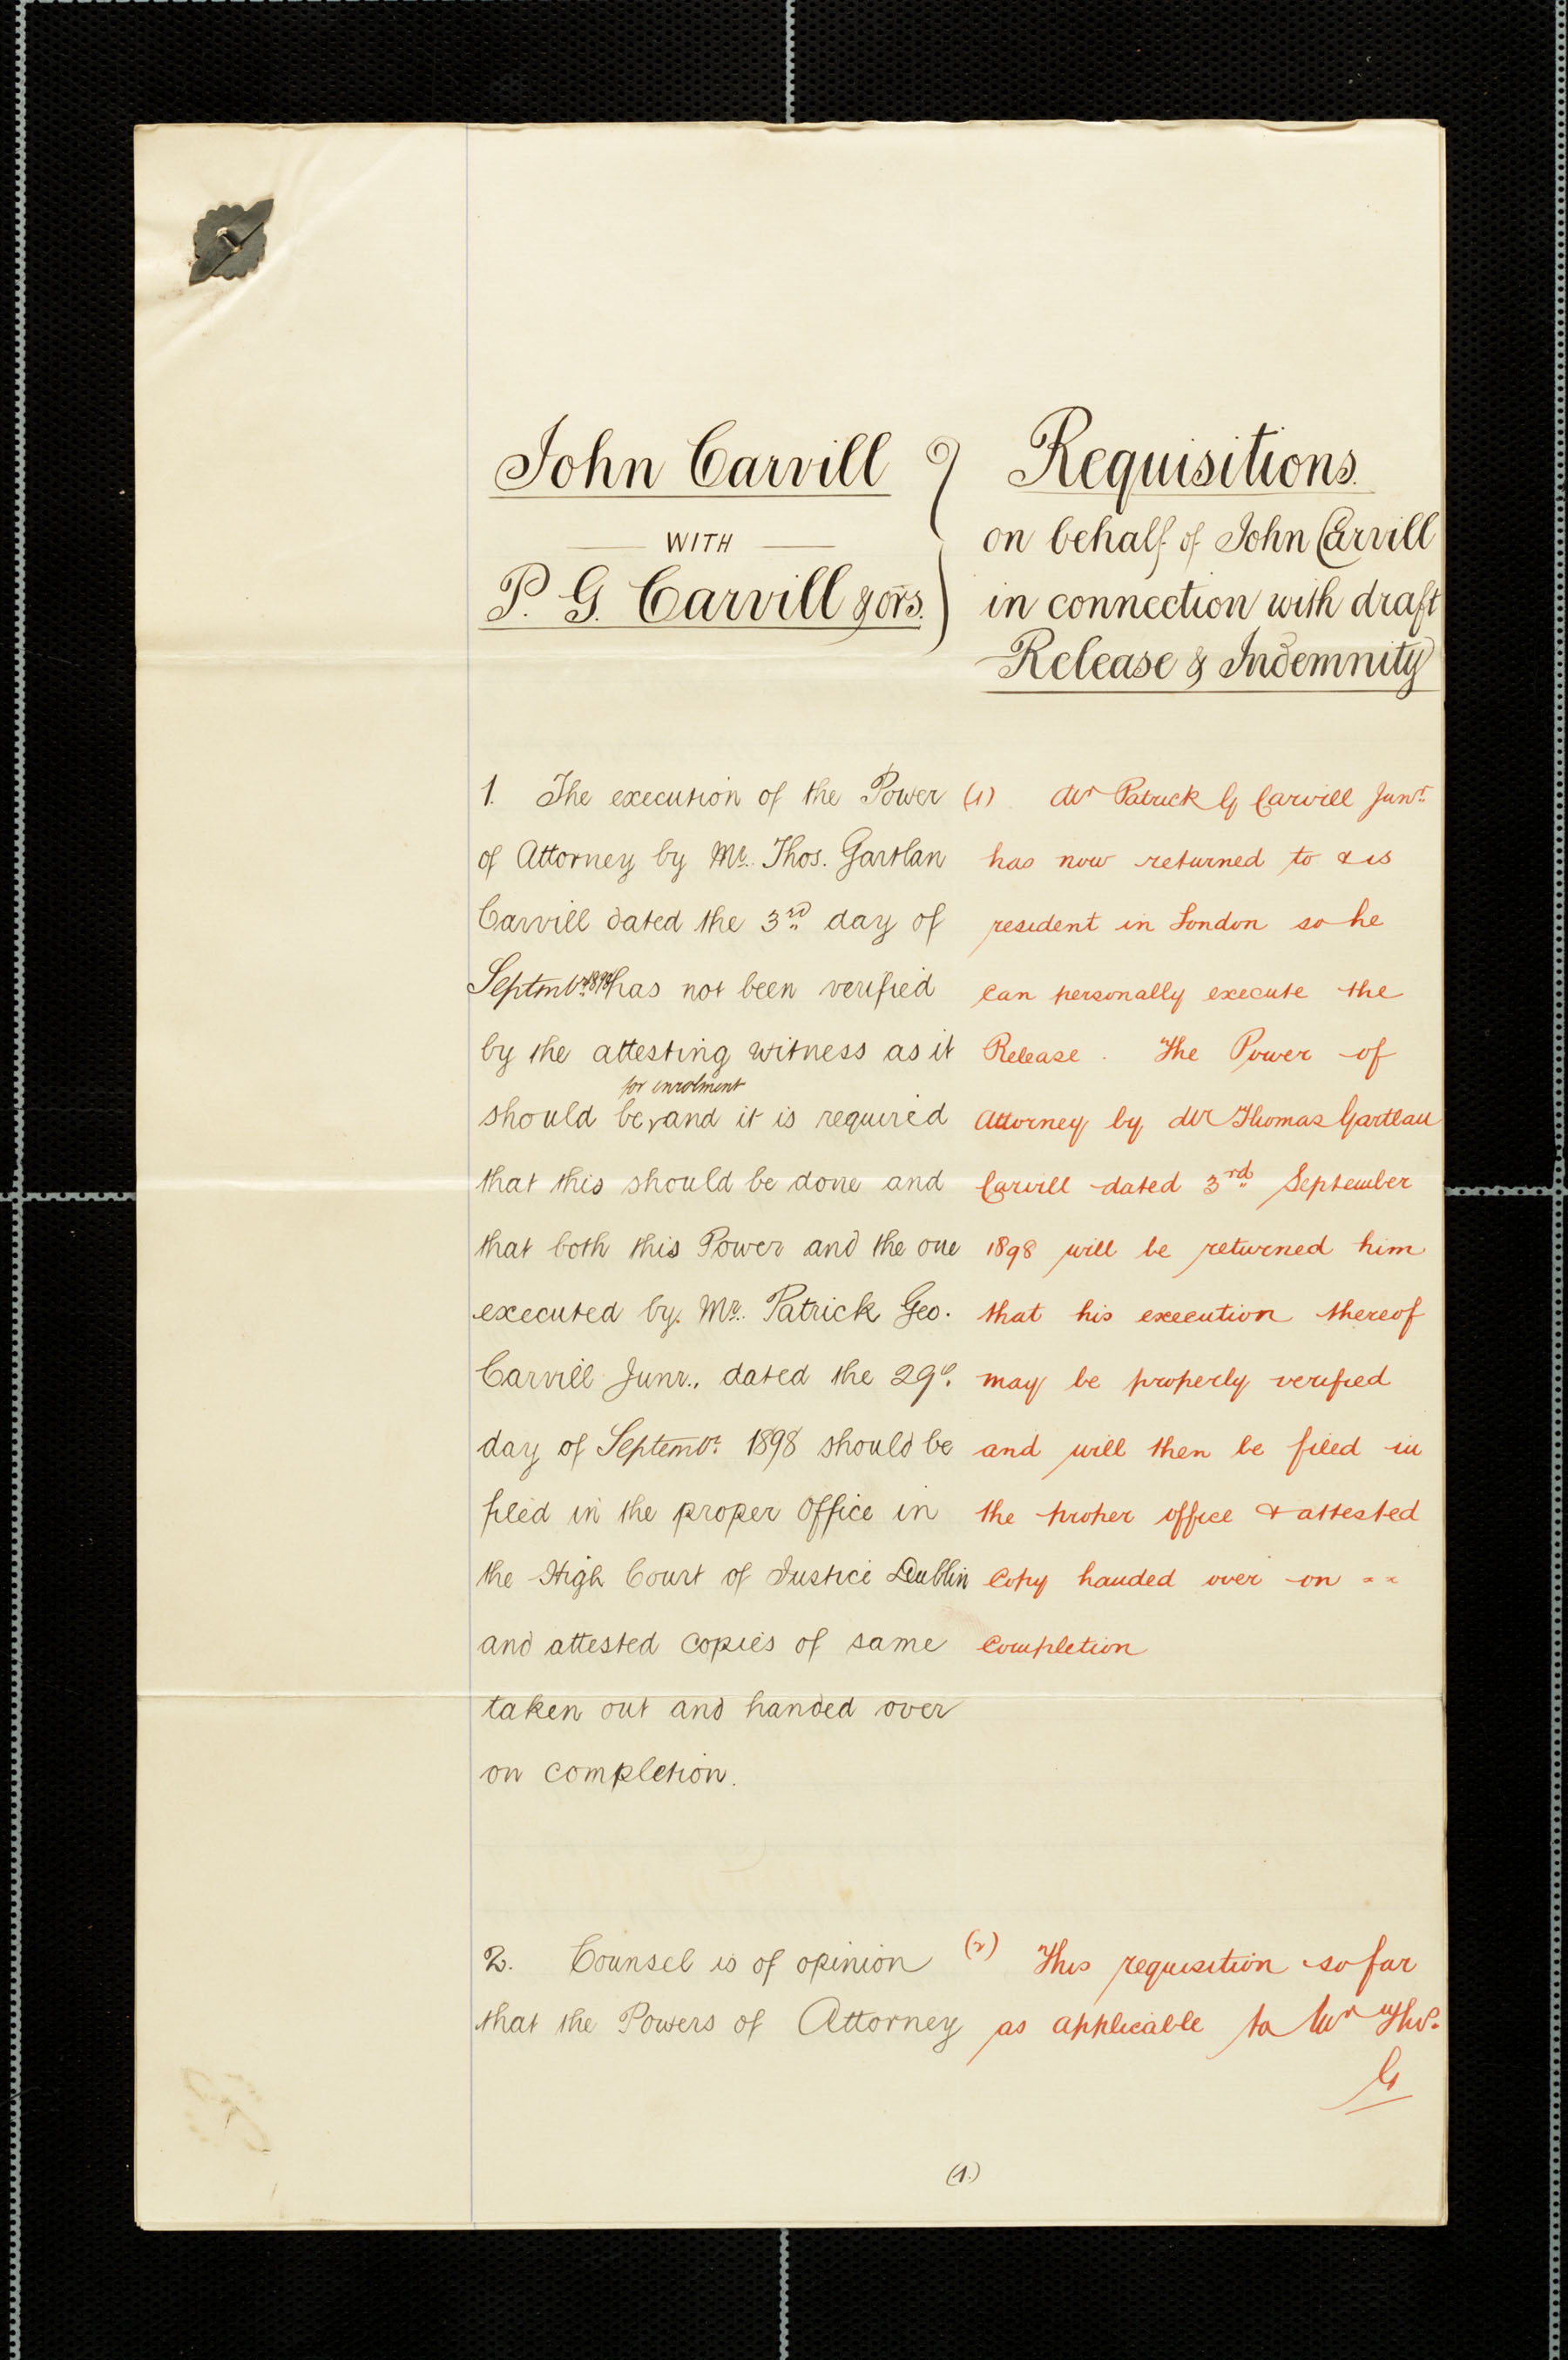 John Carvill
WITH
P. G. Carvill & ors.
Requisitions.
on behalf of John Carvill
in connection with draft
Release & Indemnity
1. The execution of the Power
of Attorney by Mr. Thos. Gartlan
Carvill dated the 3rd day of
Septembr. 1898 has not been verified
by the attesting witness as it
for enrolment
should be, and it is required
that this should be done and
that both this Power and the one
executed by Mr. Patrick Geo.
Carvill Junr., dated the 29th
day of Septembr. 1898 should be
filed in the proper Office in
the High Court of Justice Dublin
and attested copies of same
taken out and handed over
on completion.
(1) Mr Patrick G Carvill Junr.
has now returned to & is
resident in London so he
can personally execute the
Release. The Power of
Attorney by Mr Thomas Gartlan
Carvill dated 3rd September
1898 will be returned him
that his execution thereof
may be properly verified
and will then be filed in
the proper office & attested
copy handed over on
completion
2. Counsel is of opinion
that the Powers of Attorney
(2) This requisition so far
as applicable to Mr Thos.
G
(1.)